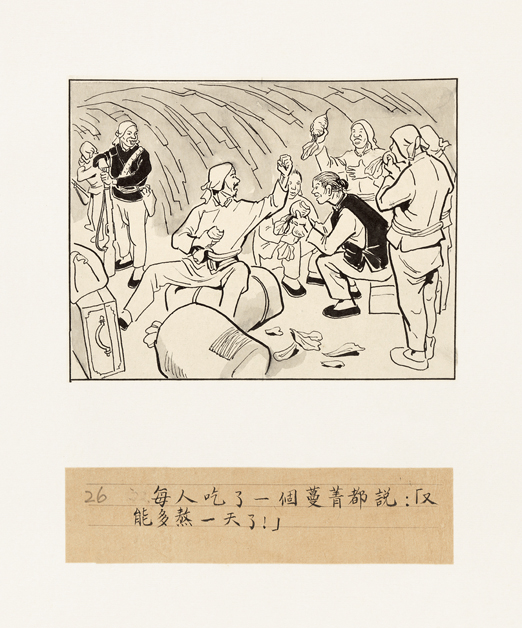 26 每人吃了一個蔓菁都説:「又
能多熬一天了!」